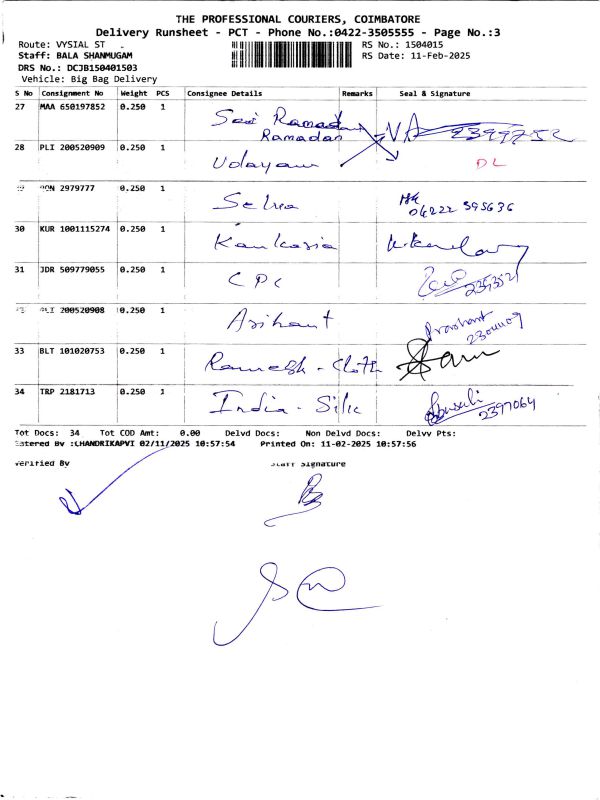 THE PROFESSIONAL COURIERS, COIMBATORE
Delivery Runsheet - PCT - Phone No.:0422-3505555 - Page No.:3
Route: VYSIAL ST RS No.: 1504015
Staff: BALA SHANMUGAM RS Date: 11-Feb-2025
DRS No.: DCJB150401503
Vehicle: Big Bag Delivery
S No Consignment No Weight PCS Consignee Details Remarks Seal & Signature
27 MAA 650197852 0.250 1 Sai Ramadas
Ramadas
28 PLI 200520909 0.250 1 Udayam DL
2979777 0.250 1 Selva
04222 395636
30 KUR 1001115274 0.250 1 Kankaria
31 JDR 509779055 0.250 1 CPC
200520908 0.250 1 Arihant Prashant
33 BLT 101020753 0.250 1 Ramesh - Cloth
34 TRP 2181713 0.250 1 India - Silk 2397064
Tot Docs: 34 Tot COD Amt: 0.00 Delvd Docs: Non Delvd Docs: Delvv Pts:
Entered By :CHANDRIKAPVI 02/11/2025 10:57:54 Printed On: 11-02-2025 10:57:56
Verified By Staff Signature